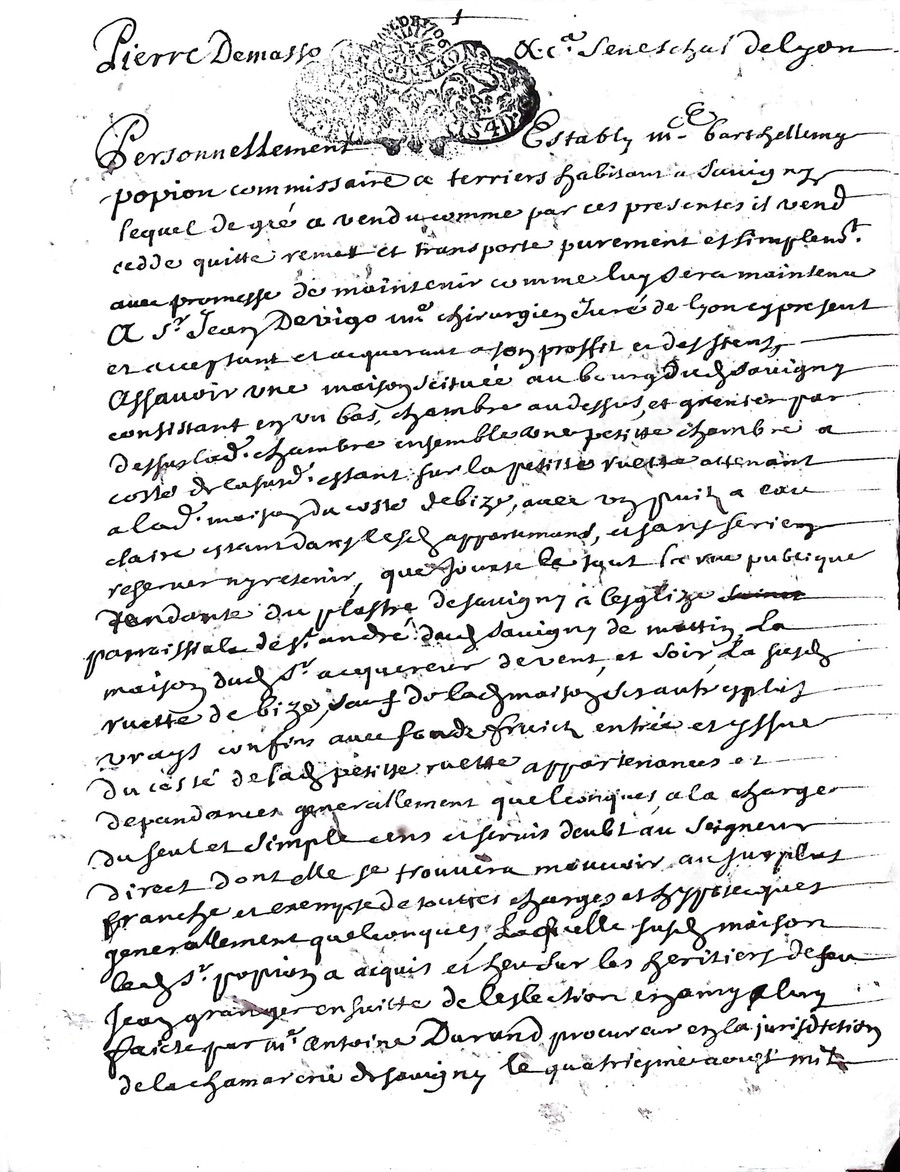 1
Pierre Demasso &c.a Seneschal de lyon
Personnellement Estably me barthellemy
popion commissaire a terriers habitant a Savigny
lequel de gré a vendu comme par ces presentes il vend
cedde quitte remet et transporte purement et simplemt.
avec promesse de maintenir comme luy sera maintenu
A Sr. Jean Devigo me chirurgien Juré de lyon cy present
et acceptant et acquerant a son proffit et des siens,
Assavoir une maison scituée au bourg dud Savigny
consistant en un bas, chambre au dessus, et grenier par
dessus lad. chambre ensemble une petitte chambre a
costé de lasusd. estant sur la petitte ruette attenant
a lad. maison du costé de bize, avec un puit a eau
claire estant dans lesd appartemens, et sans se rien
reserver ny retenir, que jouxte le tout la rue publique
tendante du plastre de savigny a lesglize
parroissiale de st. andré dud Savigny de mattin, la
maison dud Sr. acquereur de vent, et soir, la susd
ruette de bize, sauf de lad maison ses autres plus
vrays confins avec fonds fruict entrée et yssue
du costé de lad petitte ruette appartenances et
depandances generallement quelconques, a la charge
du seul et simple cens et servis doubt au Seigneur
direct dont elle se trouvera mouvoir, au surplus
franche et exempte de touttes charges et hypotecques
generallement quelconques, Laquelle susd maison
led Sr. popion a acquis et heu sur les heritiers de feu
Jean granger ensuitte de leslection en amy a luy
faicte par me. Antoine Durand procureur en la jurisdiction
de la chamarerie de savigny le quatriesme aoust mil